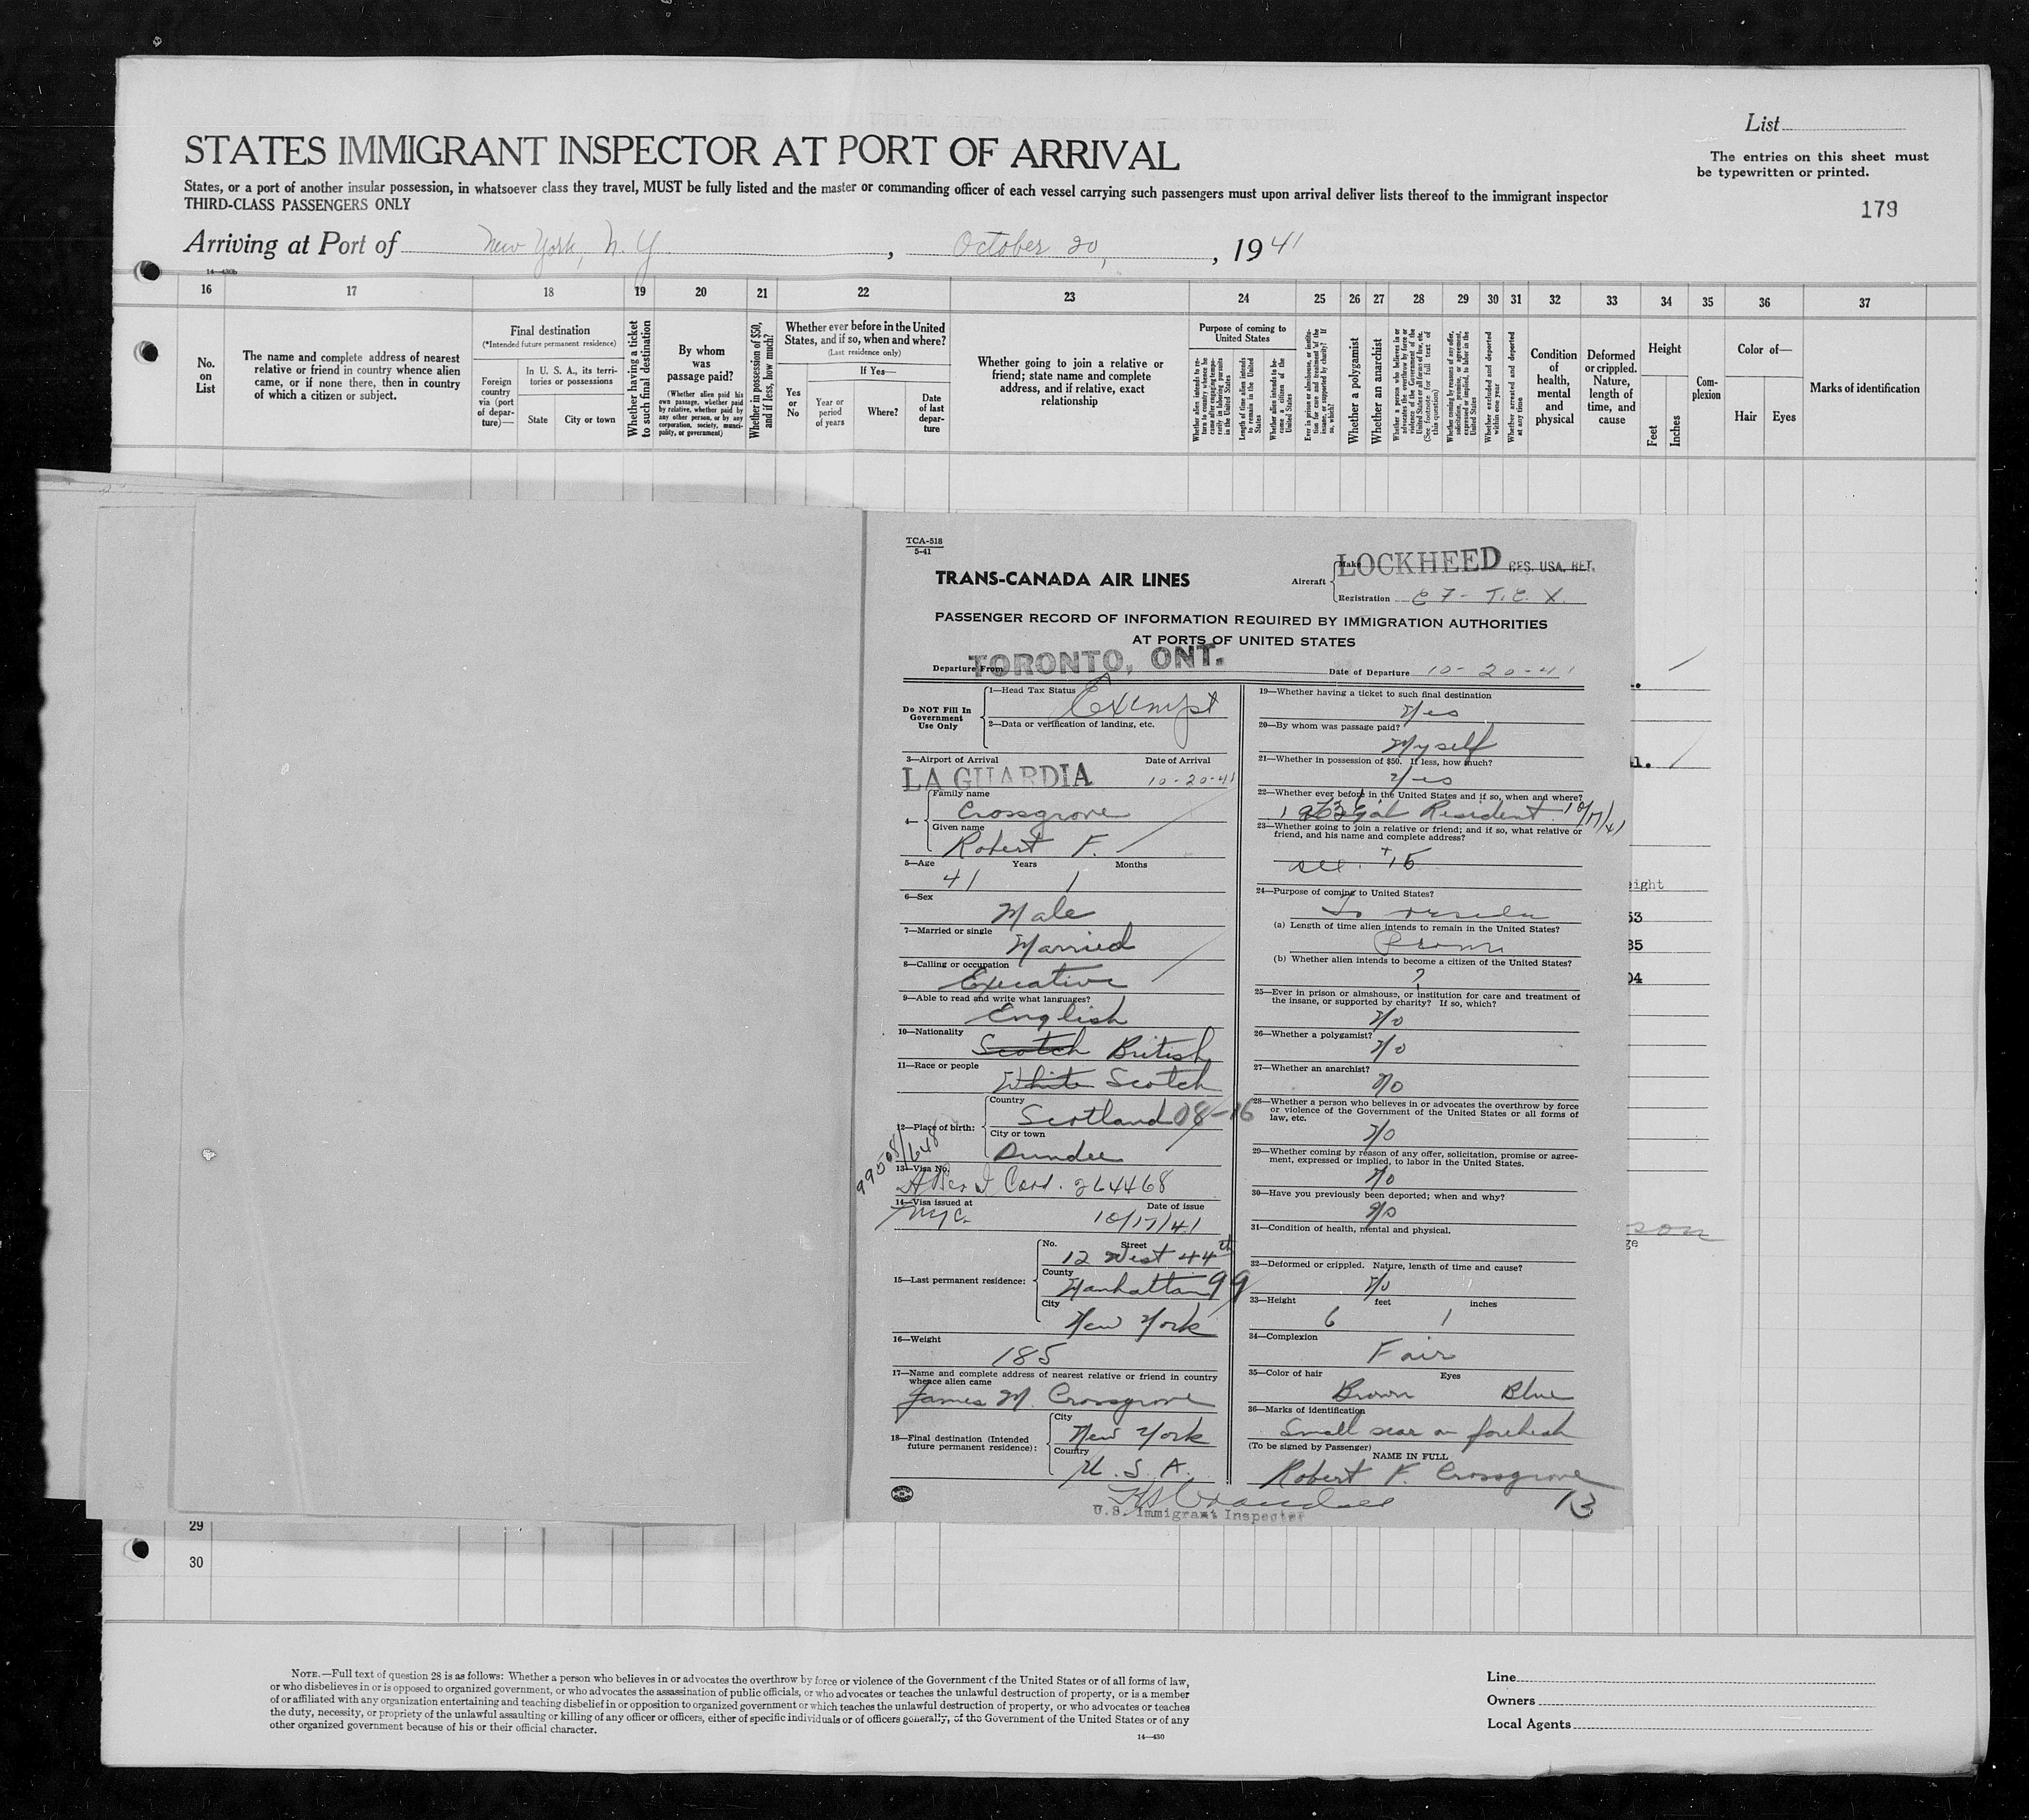 List
STATES IMMIGRANT INSPECTOR AT PORT OF ARRIVAL
The entries on this sheet must
be typewritten or printed.
States, or a port of another insular possession, in whatsoever class they travel, MUST be fully listed and the master or commanding officer of each vessel carrying such passengers must upon arrival deliver lists thereof to the immigrant inspector
THIRD-CLASS PASSENGERS ONLY
179
Arriving at Port of New York, N. Y , October 20, , 1941
14—430b
16 17 18 19 20 21 22 23 24 25 26 27 28 29 30 31 32 33 34 35 36 37
No. on List
The name and complete address of nearest relative or friend in country whence alien came, or if none there, then in country of which a citizen or subject.
Final destination
(*Intended future permanent residence)
Foreign country via (port of departure)—
In U. S. A., its territories or possessions
State City or town
Whether having a ticket to such final destination
By whom was passage paid?
(Whether alien paid his own passage, whether paid by relative, whether paid by any other person, or by any corporation, society, municipality, or government)
Whether in possession of $50, and if less, how much?
Whether ever before in the United States, and if so, when and where?
(Last residence only)
Yes or No
If Yes—
Year or period of years
Where?
Date of last departure
Whether going to join a relative or friend; state name and complete address, and if relative, exact relationship
Purpose of coming to United States
Length of time alien intends to remain in the United States
Whether alien intends to become a citizen of the United States
Whether a polygamist
Whether an anarchist
Whether excluded and deported within one year
Whether arrested and deported at any time
Condition of health, mental and physical
Deformed or crippled. Nature, length of time, and cause
Height
Feet Inches
Complexion
Color of—
Hair Eyes
Marks of identification
TCA-518
5-41
TRANS-CANADA AIR LINES
Aircraft
Make LOCKHEED RES. USA. RET.
Registration C F - T. C. X.
PASSENGER RECORD OF INFORMATION REQUIRED BY IMMIGRATION AUTHORITIES
AT PORTS OF UNITED STATES
Departure From TORONTO, ONT. Date of Departure 10-20-41
Do NOT Fill In
Government
Use Only
1—Head Tax Status Exempt
2—Data or verification of landing, etc.
3—Airport of Arrival Date of Arrival
LA GUARDIA 10-20-41
4—
Family name
Crossgrove
Given name
Robert F.
5—Age Years Months
41 1
6—Sex
Male
7—Married or single
Married
8—Calling or occupation
Executive
9—Able to read and write what languages?
English
10—Nationality
Scotch British
11—Race or people
White Scotch
12—Place of birth:
Country
Scotland 08-16
City or town
Dundee
99508/648
13—Visa No.
I Card. 264468
14—Visa issued at Date of issue
NYC. 10/17/41
15—Last permanent residence:
No. Street
12 West 44th
County
Manhattan 99
City
New York
16—Weight
185
17—Name and complete address of nearest relative or friend in country
whence alien came
James M. Crossgrove
18—Final destination (Intended
future permanent residence):
City
New York
Country
U. S. A.
U.S. Immigrant Inspector
19—Whether having a ticket to such final destination
Yes
20—By whom was passage paid?
Myself
21—Whether in possession of $50. If less, how much?
Yes
22—Whether ever before in the United States and if so, when and where?
Legal Resident 10/17/41
23—Whether going to join a relative or friend; and if so, what relative or
friend, and his name and complete address?
see 15
24—Purpose of coming to United States?
To reside
(a) Length of time alien intends to remain in the United States?
Perm
(b) Whether alien intends to become a citizen of the United States?
?
25—Ever in prison or almshouse, or institution for care and treatment of
the insane, or supported by charity? If so, which?
No
26—Whether a polygamist?
No
27—Whether an anarchist?
No
28—Whether a person who believes in or advocates the overthrow by force
or violence of the Government of the United States or all forms of
law, etc.
No
29—Whether coming by reason of any offer, solicitation, promise or agree-
ment, expressed or implied, to labor in the United States.
No
30—Have you previously been deported; when and why?
No
31—Condition of health, mental and physical.
32—Deformed or crippled. Nature, length of time and cause?
No
33—Height feet inches
6 1
34—Complexion
Fair
35—Color of hair Eyes
Brown Blue
36—Marks of identification
Small scar on forehead
(To be signed by Passenger)
NAME IN FULL
Robert F. Crossgrove
13
eight
53
85
04
son
ge
29
30
NOTE.—Full text of question 28 is as follows: Whether a person who believes in or advocates the overthrow by force or violence of the Government of the United States or of all forms of law,
or who disbelieves in or is opposed to organized government, or who advocates the assassination of public officials, or who advocates or teaches the unlawful destruction of property, or is a member
of or affiliated with any organization entertaining and teaching disbelief in or opposition to organized government or which teaches the unlawful destruction of property, or who advocates or teaches
the duty, necessity, or propriety of the unlawful assaulting or killing of any officer or officers, either of specific individuals or of officers generally, of the Government of the United States or of any
other organized government because of his or their official character.
14—430
Line
Owners
Local Agents